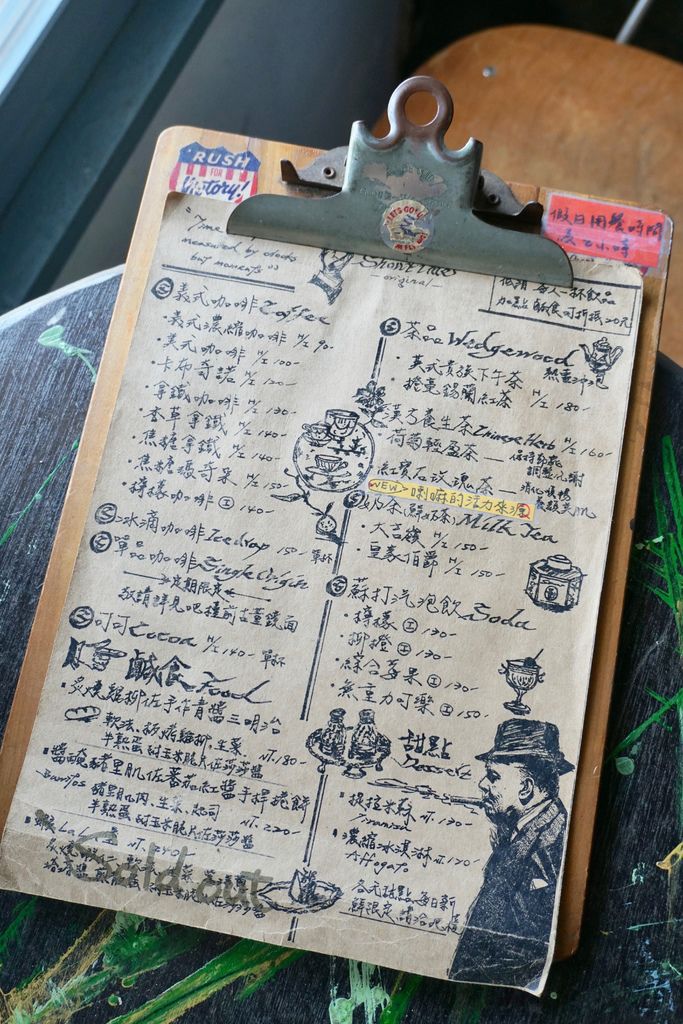 RUSH
FOR
Victory!
假日用餐時間
為2小時
"Time is
measured by clocks
but moments is
Showtime
original
低消 每人一杯飲品
加點鹹食可折抵20元
義式咖啡 Coffee
·義式濃縮咖啡 H/I 90-
·美式咖啡 H/I 100-
·卡布奇諾 H/I 120-
·拿鐵咖啡 H/I 130-
·香草拿鐵 H/I 140-
·焦糖拿鐵 H/I 140-
·焦糖瑪奇朵 H/I 150-
·檸檬咖啡 I 140-
冰滴咖啡 Ice drop 150- 單杯
單品咖啡 Single Origin
定期限定
敬請詳見吧檯前古董鏡面
可可 Cocoa H/I 140- 單杯
鹹食 Food
·炙燒雞柳佐手作青醬三明治
半熟蛋 附玉米脆片佐莎莎醬 NT.180-
·醬醃豬里肌佐蕃茄紅醬手捍捲餅
Burritos 豬里肌肉、生菜、起司
半熟蛋 附玉米脆片佐莎莎醬 NT.220-
Sold out
茶品 Wedgewood
·英式貴族下午茶 熱壺沖泡
·捲東錫蘭紅茶 H/I 180-
漢方養生茶 Chinese Herb H/I 160-
·荷葉輕盈茶
·紅寶石玫瑰茶
NEW 喇嘛的活力來源
奶茶(鮮奶茶) Milk Tea
·大吉嶺 H/I 150-
·皇家伯爵 H/I 150-
蘇打汽泡飲 Soda
·檸檬 I 130-
·柳橙 I 130-
·綜合莓果 I 130-
·無重力可樂 I 150-
甜點
Dessert
·提拉米蘇 NT.130-
Tiramisu
·濃縮冰淇淋 NT.120-
Affogato
各式甜點每日新
鮮限定,請洽吧檯